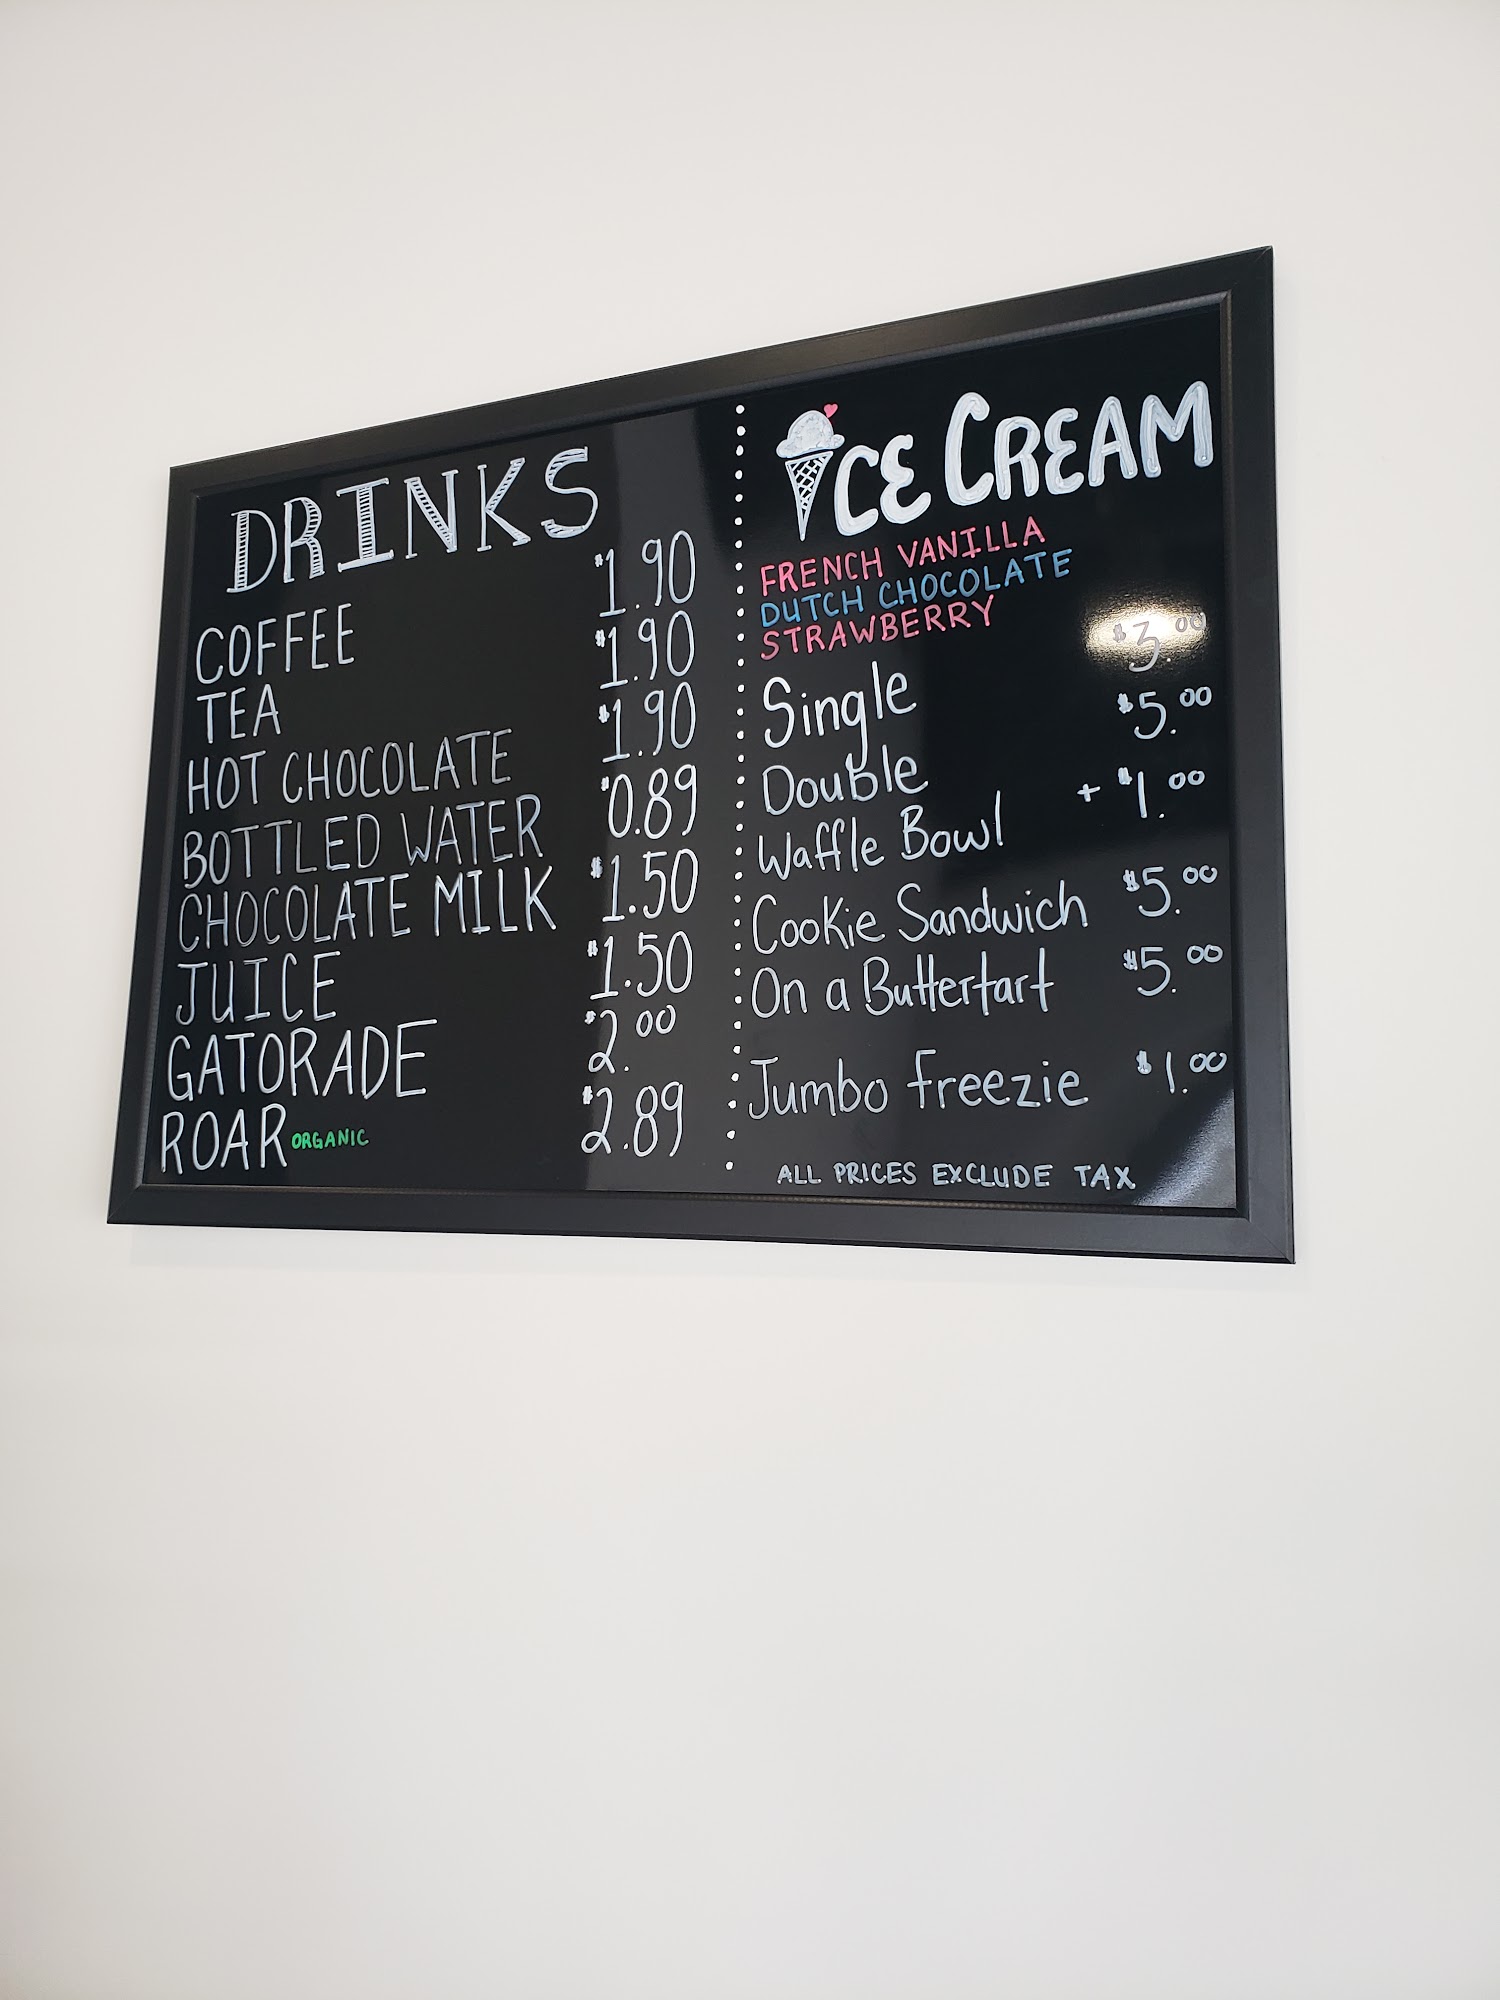 DRINKS
COFFEE $1.90
TEA $1.90
HOT CHOCOLATE $1.90
BOTTLED WATER $0.89
CHOCOLATE MILK $1.50
JUICE $1.50
GATORADE $2.00
ROAR ORGANIC $2.89
ICE CREAM
FRENCH VANILLA
DUTCH CHOCOLATE
STRAWBERRY
Single $3.00
Double $5.00
Waffle Bowl + $1.00
Cookie Sandwich $5.00
On a Buttertart $5.00
Jumbo freezie $1.00
ALL PRICES EXCLUDE TAX